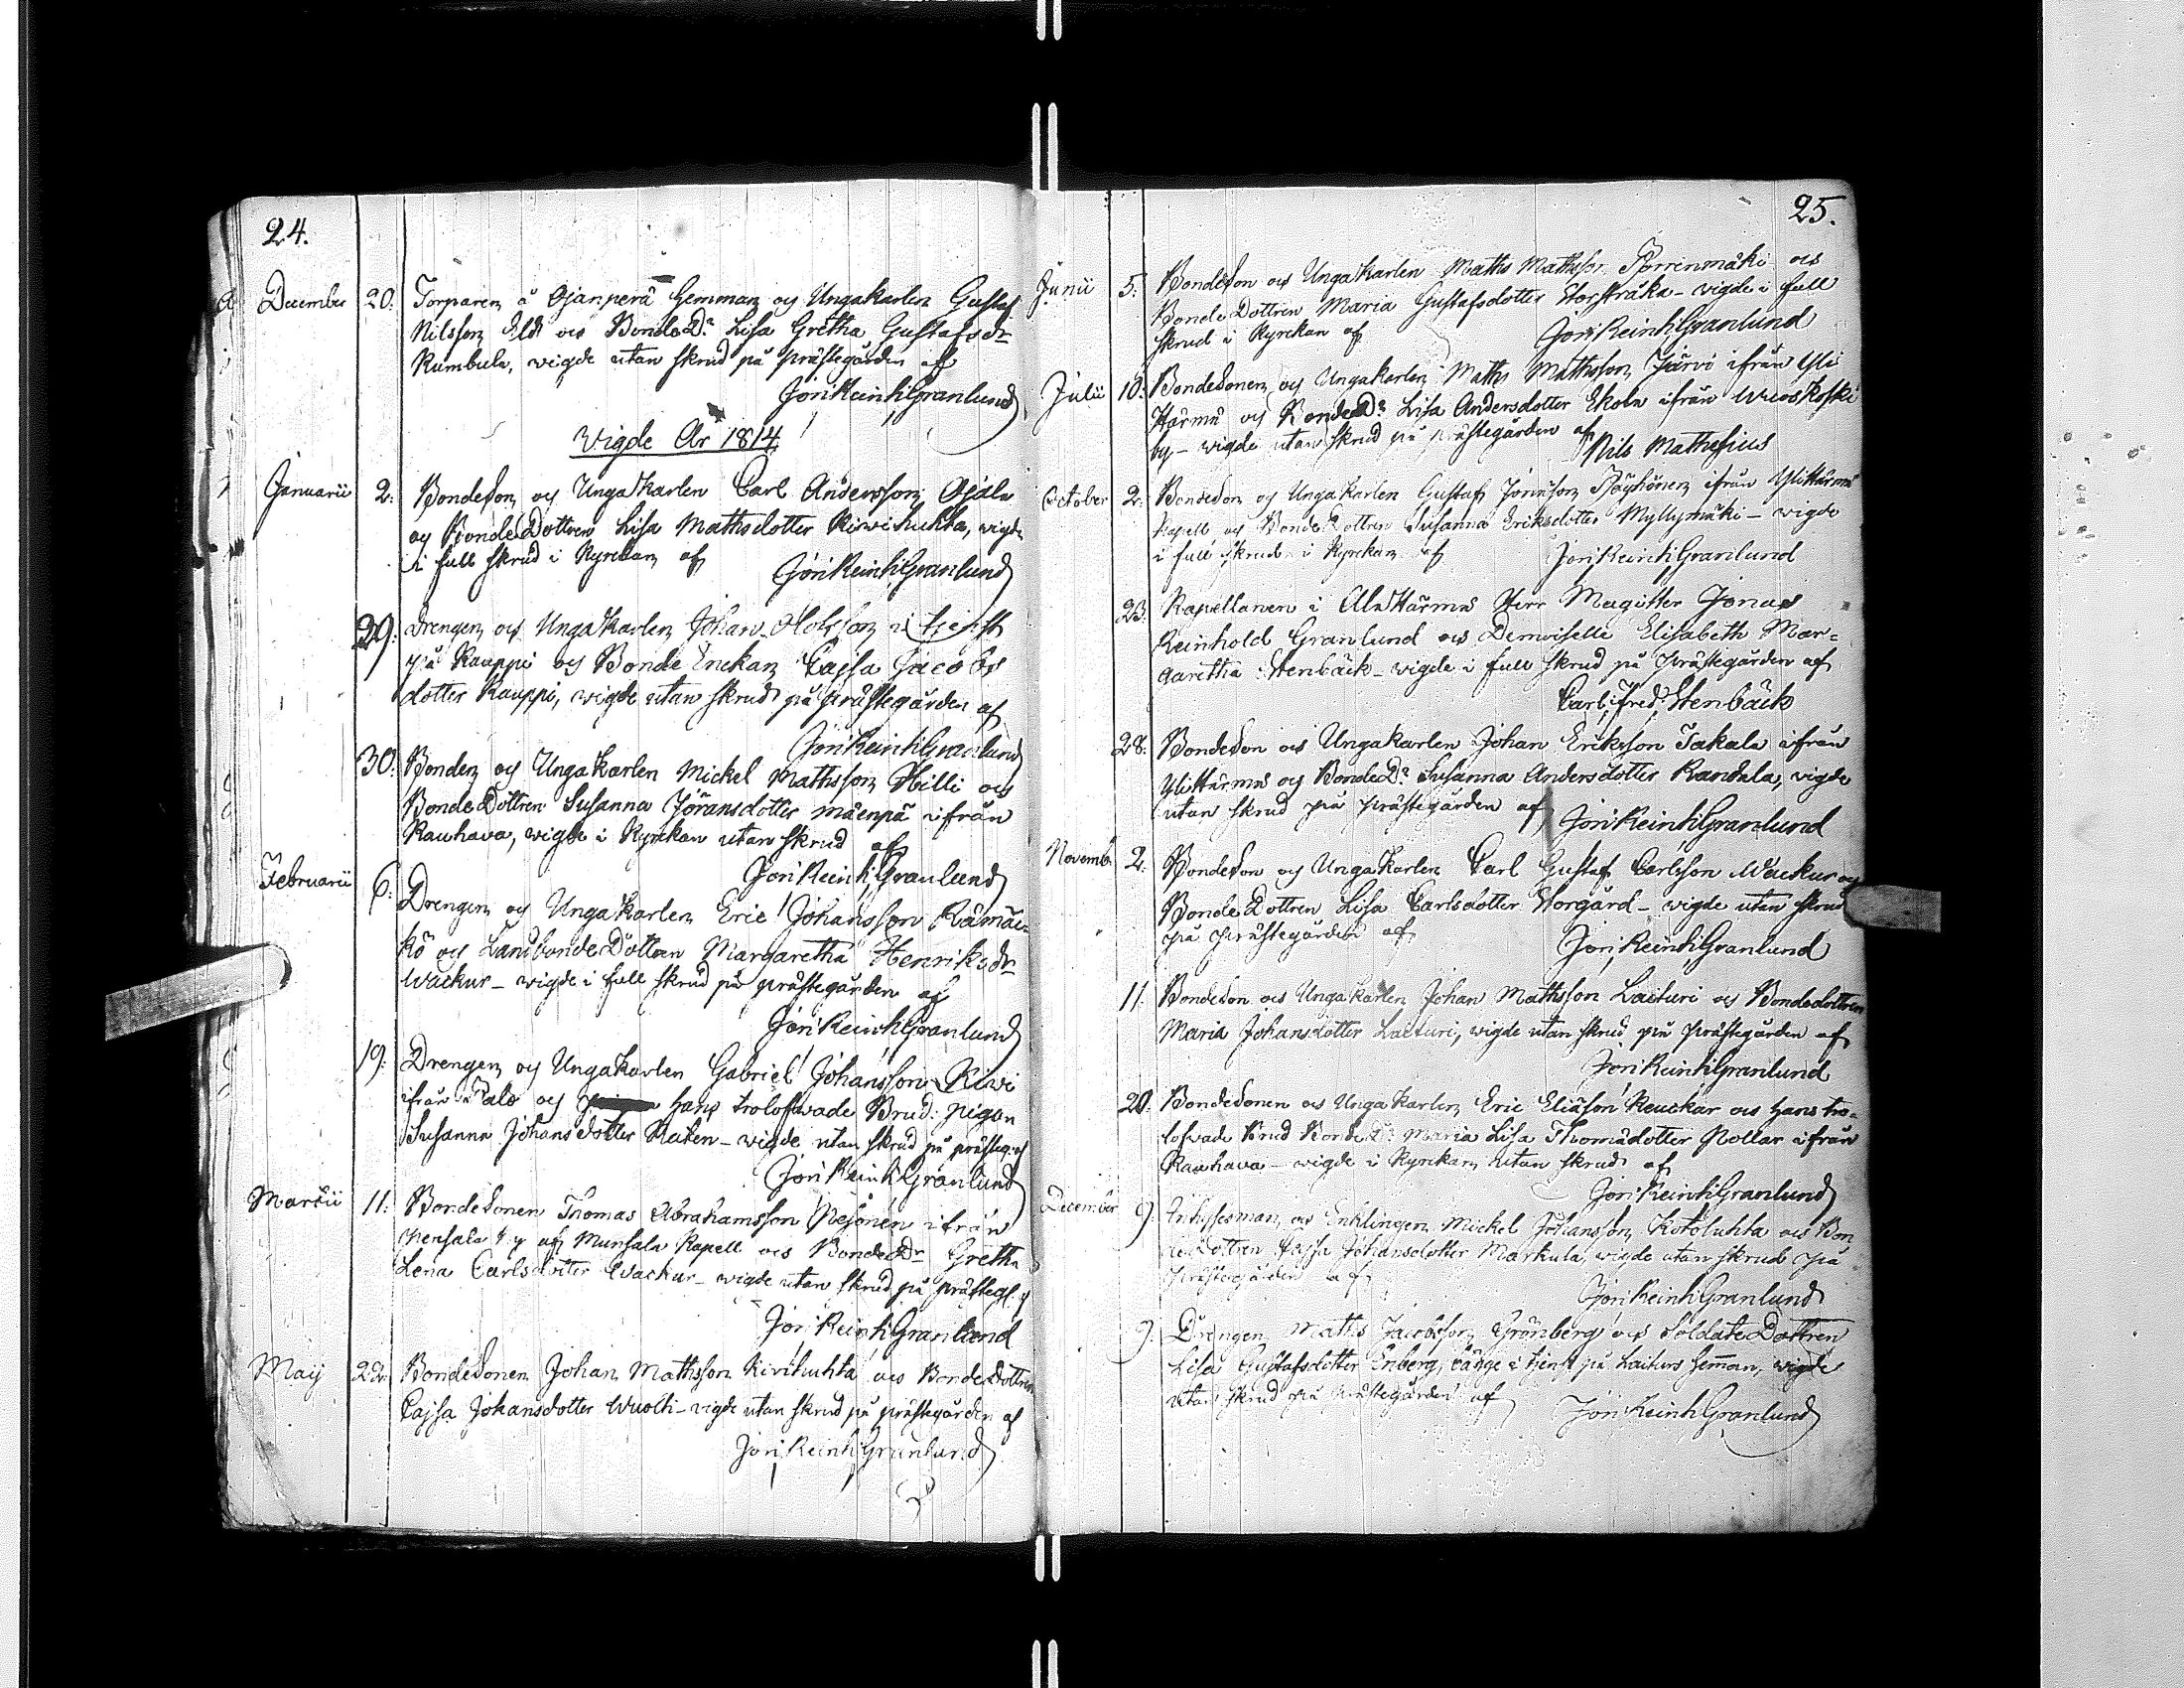 24.
December 20. Torparen å Ojanperä Hemman och Ungakarlen Gustaf
Nilsson och BondeDr Lisa Gretha Gustafsdr
Rumbula, vigde utan skrud på prästegården af
JonReinhGranlund
Vigde År 1814.
Januarii 2. BondeSon och Ungakarlen Carl Andersson Ojala
och BondeDottren Lisa Mathsdotter Kivihuhta, vigde
i full skrud i Kyrckan af
JonReinhGranlund
29. Drengen och Ungakarlen Johan Olofsson i tjenst
på Kauppi och BondeEnckan Cajsa Jacobs
dotter Kauppi, vigde utan skrud på prästegården af
JonReinhGranlund
30. Bonden och Ungakarlen Mickel Mathsson Hilli och
BondeDottren Susanna Jöransdotter Mäenpä ifrån
Kauhava, vigde i Kyrckan utan skrud af
JonReinhGranlund
Februarii 6. Drengen och Ungakarlen Eric Johansson Rämäc
kö och LandbondeDottren Margaretha Henriksdr
Wäckur – vigde i full skrud på prästegården af
JonReinhGranlund
19. Drengen och Ungakarlen Gabriel Johansson Kivi
ifrån Palo och hans trolofvade Brud: pigan
Susanna Johansdotter – vigde utan skrud på prästeg: af
JonReinhGranlund
Martii 11. BondeSonen Thomas Abrahamsson ifrån
af Munsala Kapell och BondeDr Gretha
Lena Carlsdotter Wäckur – vigde utan skrud på prästeg: af
JonReinhGranlund
Maij 22. BondeSonen Johan Mathsson Kivihuhta och BondeDottren
Cajsa Johansdotter Wuolti – vigde utan skrud på prästegården af
JonReinhGranlund
25.
Junii 5. BondeSon och Ungakarlen Maths Mathsson Pörrenmäki och
BondeDottren Maria Gustafsdotter Storsträka – vigde i full
skrud i Kyrckan af
JonReinhGranlund
Julii 10. BondeSonen och Ungakarlen Maths Mathsson Järvi ifrån Yli
Härmä och BondeDr Lisa Andersdotter Ekola ifrån Wuoskoski
by – vigde utan skrud på prästegården af
Nils Mathesius
October 2. BondeSon och Ungakarlen Gustaf ifrån YliHärmä
Kapell, och BondeDottren Susanna Eriksdotter Myllymäki – vigde
i full skrud i Kyrckan af
JonReinhGranlund
23. Kapellanen i AlaHärmä Herr Magister Jonas
Reinhold Granlund och Demoiselle Elisabeth Mar=
garetha Stenbäck – vigde i full skrud på prästegården af
Carl Fred: Stenbäck
28. BondeSon och Ungakarlen Johan Eriksson Takala ifrån
YliHärmä och BondeDr Susanna Andersdotter Rantala, vigde
utan skrud på prästegården af
JonReinhGranlund
Novemb. 2. BondeSon och Ungakarlen Carl Gustaf Carlsson Wäckur och
BondeDottren Lisa Carlsdotter Storgård – vigde utan skrud
på prästegården af
JonReinhGranlund
11. BondeSon och Ungakarlen Johan Mathsson Laituri och Bondedottren
Maria Johansdotter Laituri, vigde utan skrud på prästegården af
JonReinhGranlund
20. BondeSonen och Ungakarlen Eric Eliäson Keuckar och hans tro=
lofvade Brud BondeDr Maria Lisa Thomädotter Pollar ifrån
Kauhava – vigde i Kyrckan utan skrud af
JonReinhGranlund
December 9. Inhysesman och Enklingen Mickel Johansson Kotoluhta och Bon
deDottren Cajsa Johansdotter Markula, vigde utan skrud på
prästegården af
JonReinhGranlund
9. Drengen Maths Jacobsson Grönberg och SoldateDottren
Lisa Gustafsdotter Enberg, bägge i tjenst på Laiturs heman, vigde
utan skrud på prästegården af
JonReinhGranlund